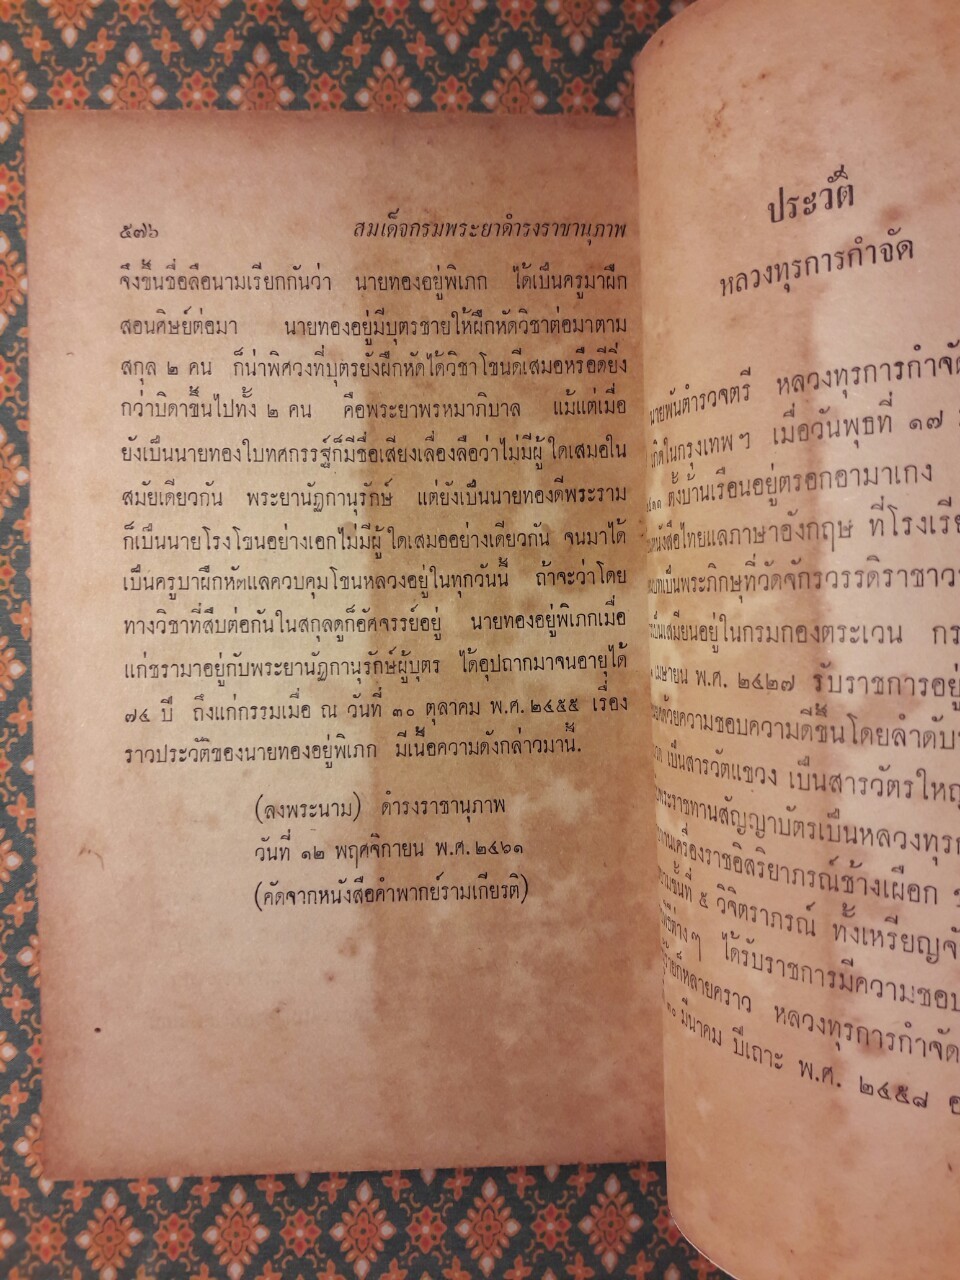 ๕๗๖ สมเด็จกรมพระยาดำรงราชานุภาพ
จึงขึ้นชื่อลือนามเรียกกันว่า นายทองอยู่พิเภก ได้เป็นครูมาฝึก
สอนศิษย์ต่อมา นายทองอยู่มีบุตรชายให้ฝึกหัดวิชาต่อมาตาม
สกุล ๒ คน ก็น่าพิศวงที่บุตรยังฝึกหัดได้วิชาโขนดีเสมอหรือดียิ่ง
กว่าบิดาขึ้นไปทั้ง ๒ คน คือพระยาพรหมาภิบาล แม้แต่เมื่อ
ยังเป็นนายทองใบทศกรรฐ์ก็มีชื่อเสียงเลื่องลือว่าไม่มีผู้ใดเสมอใน
สมัยเดียวกัน พระยานัฏกานุรักษ์ แต่ยังเป็นนายทองดีพระราม
ก็เป็นนายโรงโขนอย่างเอกไม่มีผู้ใดเสมออย่างเดียวกัน จนมาได้
เป็นครูบาฝึกหัดแลควบคุมโขนหลวงอยู่ในทุกวันนี้ ถ้าจะว่าโดย
ทางวิชาที่สืบต่อกันในสกุลดูก็อัศจรรย์อยู่ นายทองอยู่พิเภกเมื่อ
แก่ชรามาอยู่กับพระยานัฏกานุรักษ์ผู้บุตร ได้อุปถากมาจนอายุได้
๗๔ ปี ถึงแก่กรรมเมื่อ ณ วันที่ ๓๐ ตุลาคม พ.ศ. ๒๔๕๕ เรื่อง
ราวประวัติของนายทองอยู่พิเภก มีเนื้อความดังกล่าวมานี้.
(ลงพระนาม) ดำรงราชานุภาพ
วันที่ ๑๒ พฤศจิกายน พ.ศ. ๒๔๖๑
(คัดจากหนังสือคำพากย์รามเกียรติ)
ประวัติ
หลวงทุรการกำจัด
นายพันตำรวจตรี หลวงทุรการกำจัด
เกิดในกรุงเทพฯ เมื่อวันพุธที่ ๑๗
ตั้งบ้านเรือนอยู่ตรอกอามาเกง
หนังสือไทยแลภาษาอังกฤษ ที่โรงเรี
เป็นพระภิกษุที่วัดจักรวรรดิราชาว
เป็นเสมียนอยู่ในกรมกองตระเวน
เมษายน พ.ศ. ๒๔๒๗ รับราชการอยู่
ด้วยความชอบความดีขึ้นโดยลำดับ
เป็นสารวัตแขวง เป็นสารวัตรใหญ่
พระราชทานสัญญาบัตรเป็นหลวงทุรก
เครื่องราชอิสริยาภรณ์ช้างเผือก
ชั้นที่ ๕ วิจิตราภรณ์ ทั้งเหรียญจั
ต่างๆ ได้รับราชการมีความชอบ
หลายคราว หลวงทุรการกำจัด
๓๐ มีนาคม ปีเถาะ พ.ศ. ๒๔๕๘